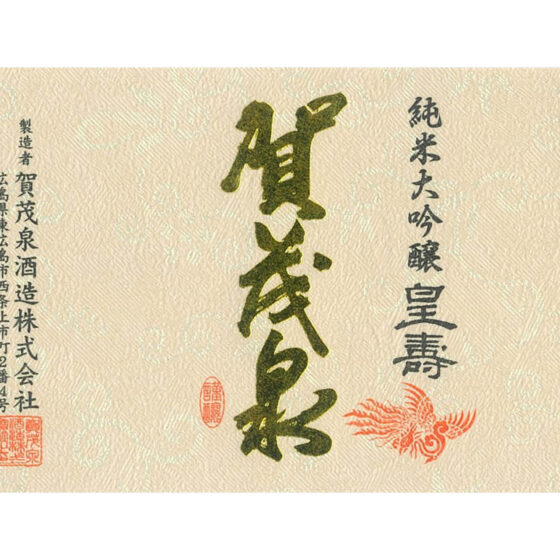 純米大吟醸 皇壽
賀茂泉
製造者 賀茂泉酒造株式会社
広島県東広島市西条上市町2番4号